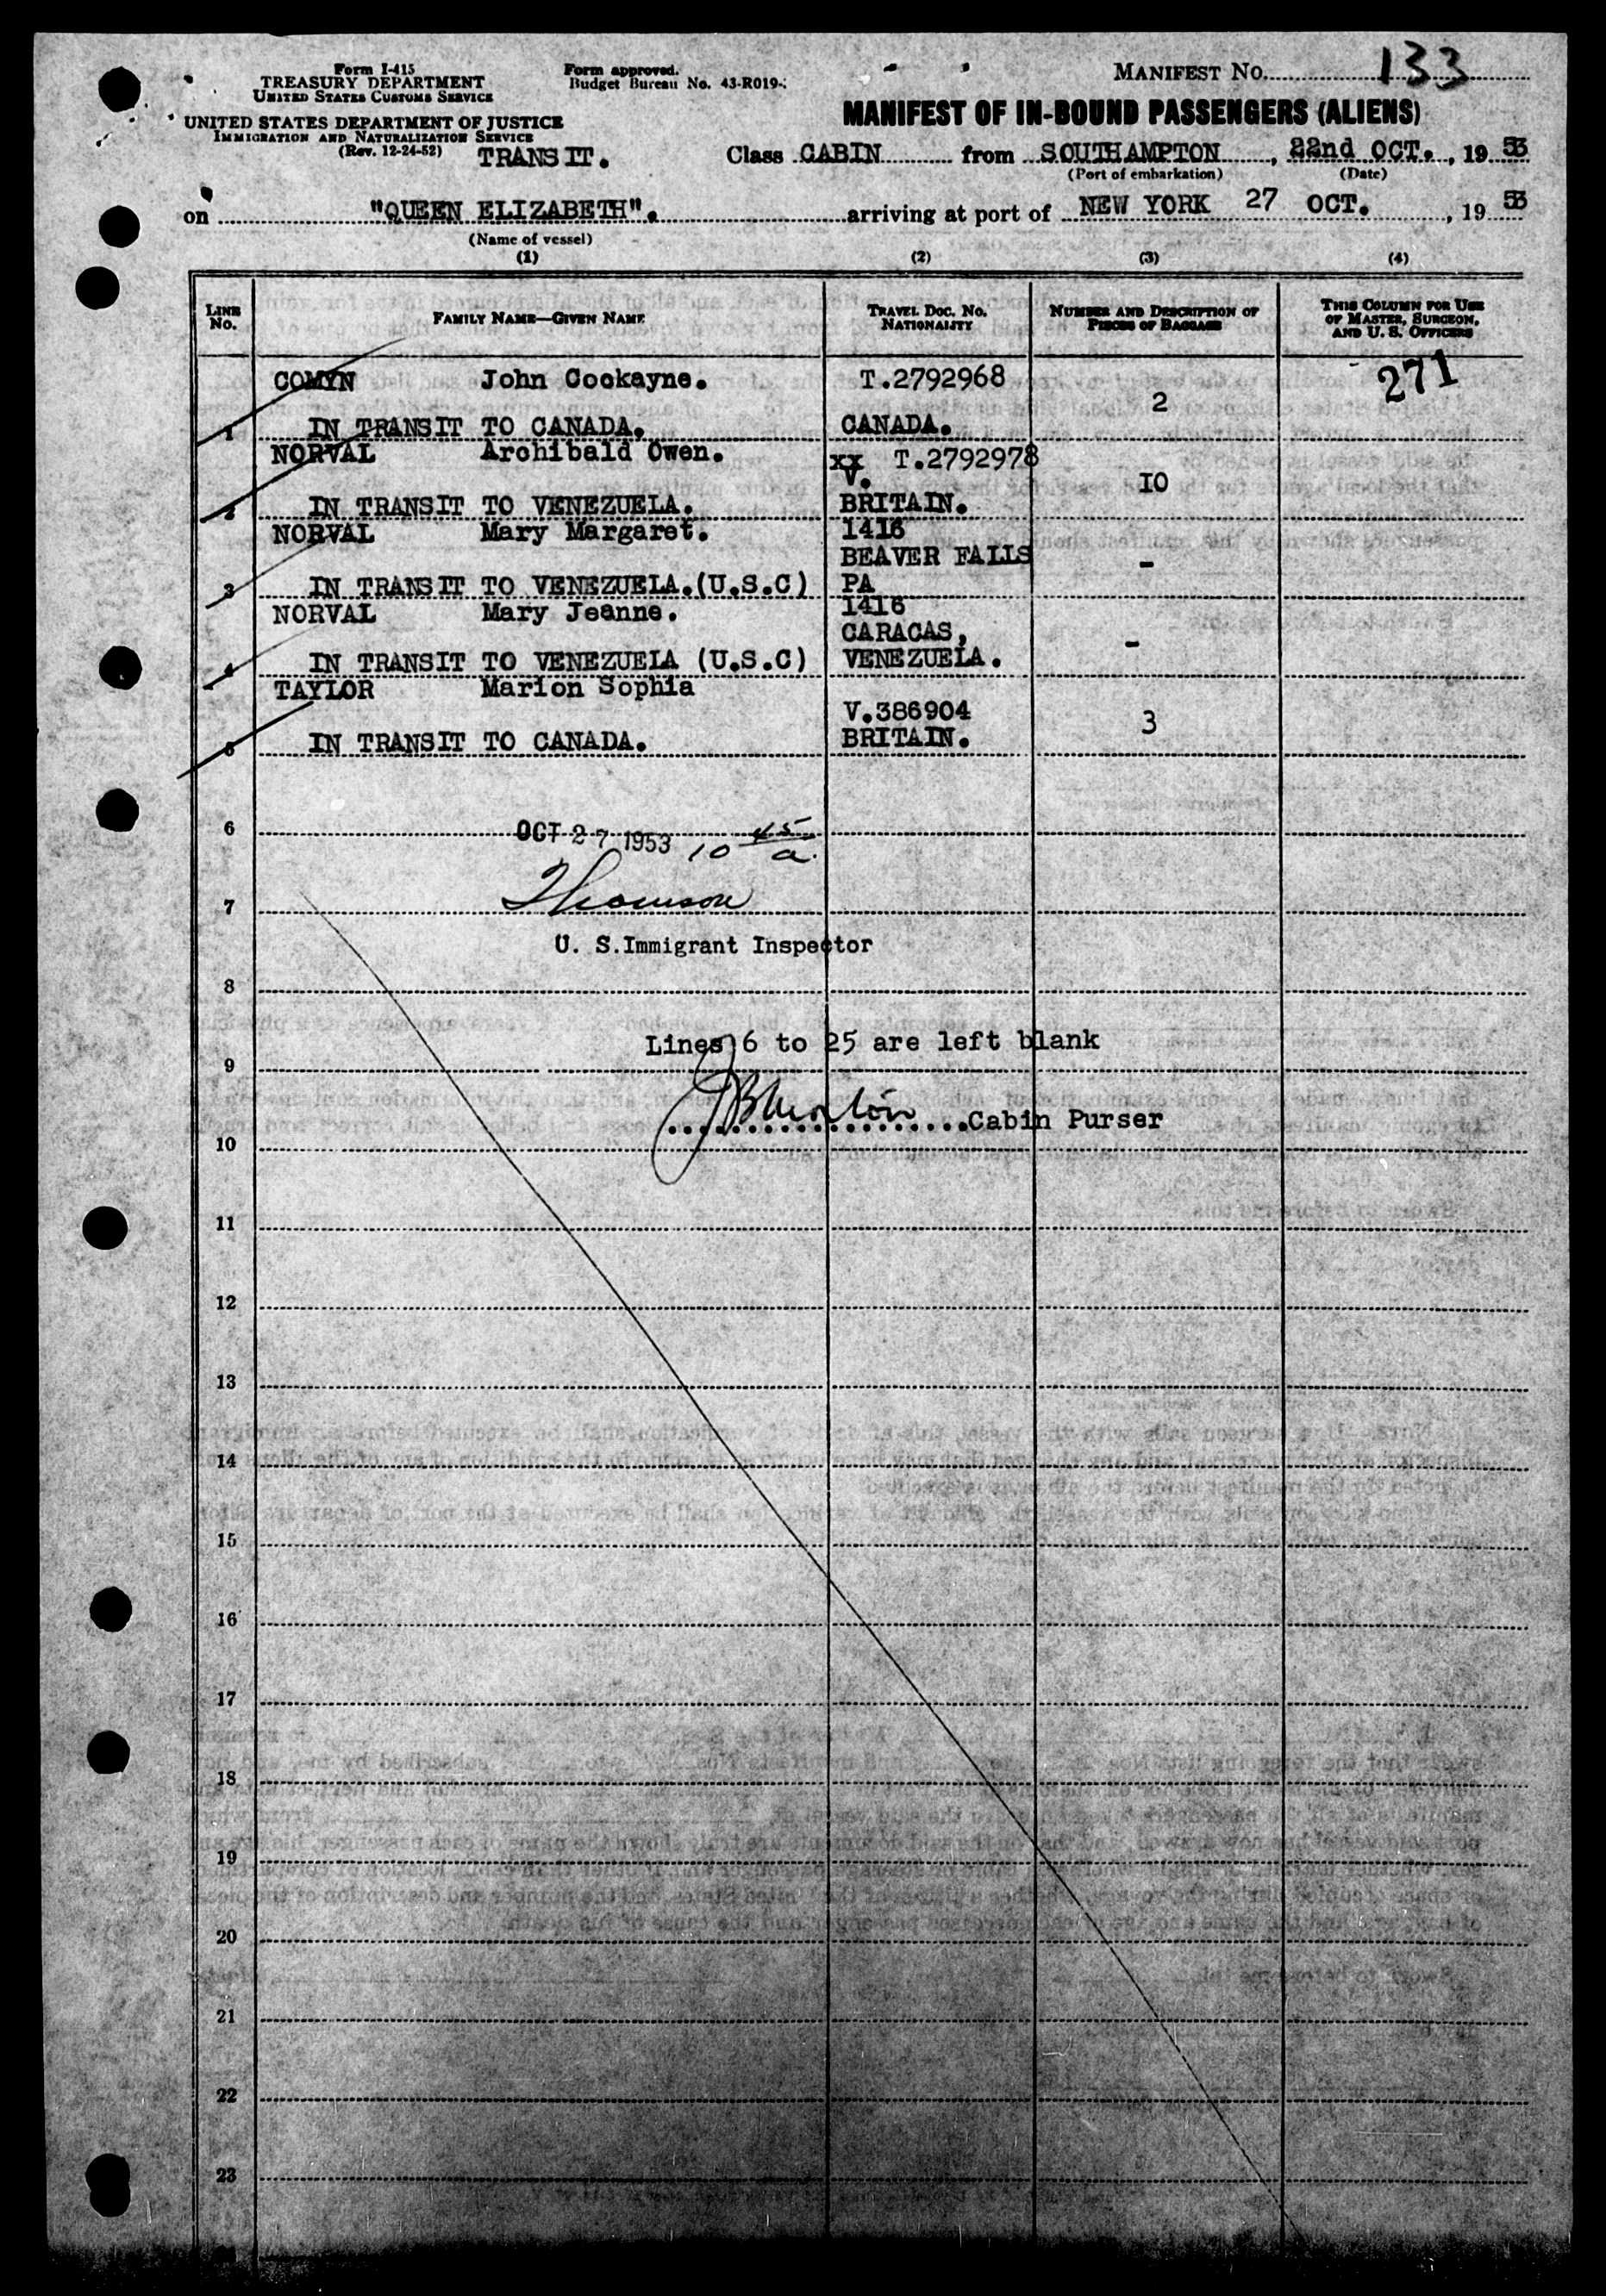 Form I-415
TREASURY DEPARTMENT
UNITED STATES CUSTOMS SERVICE
UNITED STATES DEPARTMENT OF JUSTICE
IMMIGRATION AND NATURALIZATION SERVICE
(Rev. 12-24-52) TRANSIT.
Form approved.
Budget Bureau No. 43-R019-
MANIFEST NO. 133
MANIFEST OF IN-BOUND PASSENGERS (ALIENS)
Class CABIN from SOUTHAMPTON, 22nd OCT., 19 53
(Port of embarkation) (Date)
on "QUEEN ELIZABETH". arriving at port of NEW YORK 27 OCT., 19 53
(Name of vessel)
(1) (2) (3) (4)
LINE NO.
FAMILY NAME—GIVEN NAME
TRAVEL DOC. NO. NATIONALITY
NUMBER AND DESCRIPTION OF PIECES OF BAGGAGE
THIS COLUMN FOR USE OF MASTER, SURGEON, AND U. S. OFFICERS
COMYN John Cockayne. T.2792968 2 271
1 IN TRANSIT TO CANADA. CANADA.
NORVAL Archibald Owen. xx T.2792978
V. 10
2 IN TRANSIT TO VENEZUELA. BRITAIN.
NORVAL Mary Margaret. 1416
BEAVER FALLS -
3 IN TRANSIT TO VENEZUELA.(U.S.C) PA
NORVAL Mary Jeanne. 1416
CARACAS, -
4 IN TRANSIT TO VENEZUELA (U.S.C) VENEZUELA.
TAYLOR Marion Sophia
V.386904 3
5 IN TRANSIT TO CANADA. BRITAIN.
6
OCT 27 1953 10 45/a.
Thomson
7
U. S.Immigrant Inspector
8
Lines 6 to 25 are left blank
9
Cabin Purser
10
11
12
13
14
15
16
17
18
19
20
21
22
23